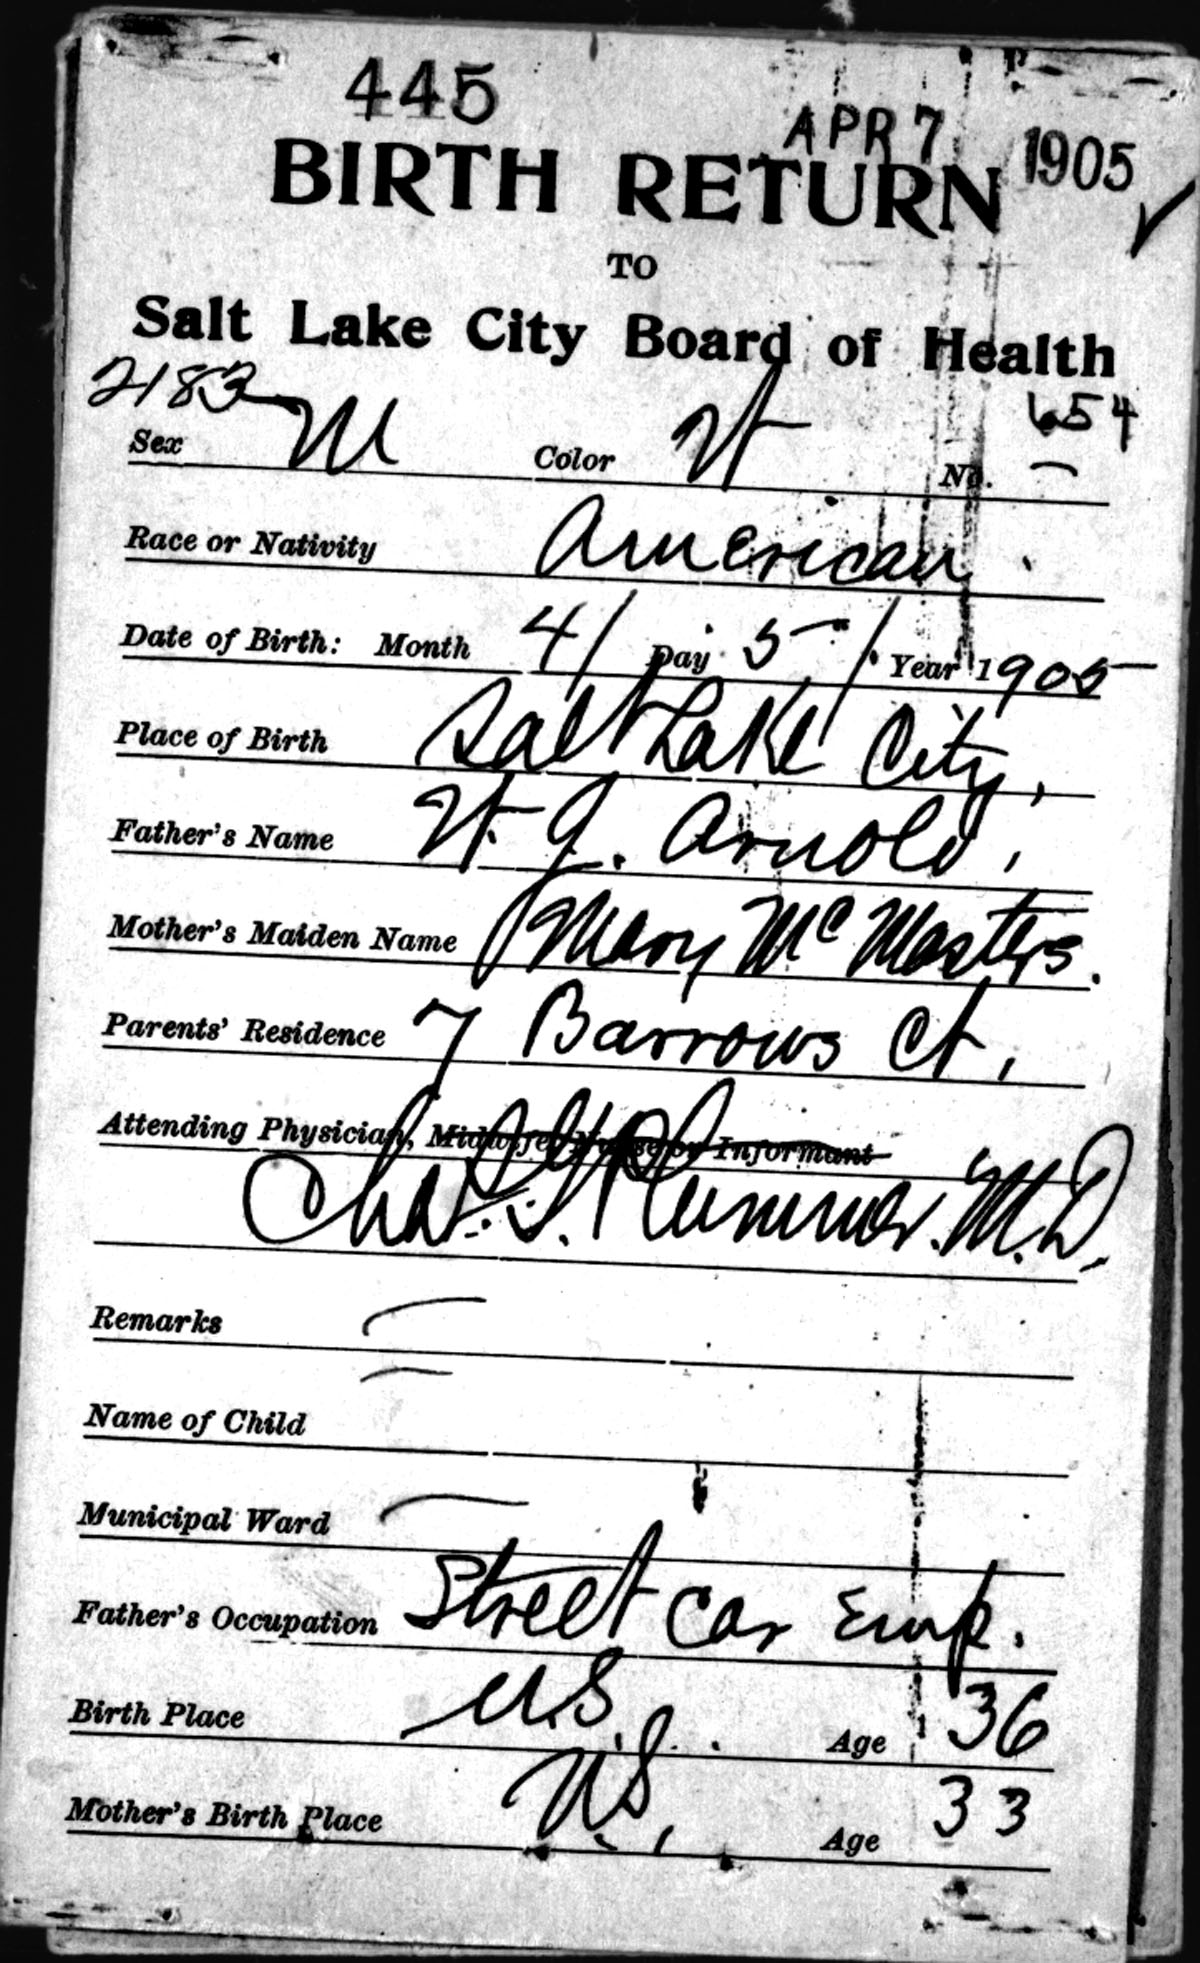 445
APR 7 1905
BIRTH RETURN
TO
Salt Lake City Board of Health
2183 654
Sex M Color W No. —
Race or Nativity American.
Date of Birth: Month 4/ Day 5/ Year 1905
Place of Birth Salt Lake City,
Father's Name W. J. Arnold,
Mother's Maiden Name Mary McMasters.
Parents' Residence 7 Barrows Ct,
Attending Physician, Midwife, Nurse or Informant
Chas. G. Plummer. M.D.
Remarks —
Name of Child —
Municipal Ward —
Father's Occupation Street Car Emp.
Birth Place U.S. Age 36
Mother's Birth Place U.S. Age 33